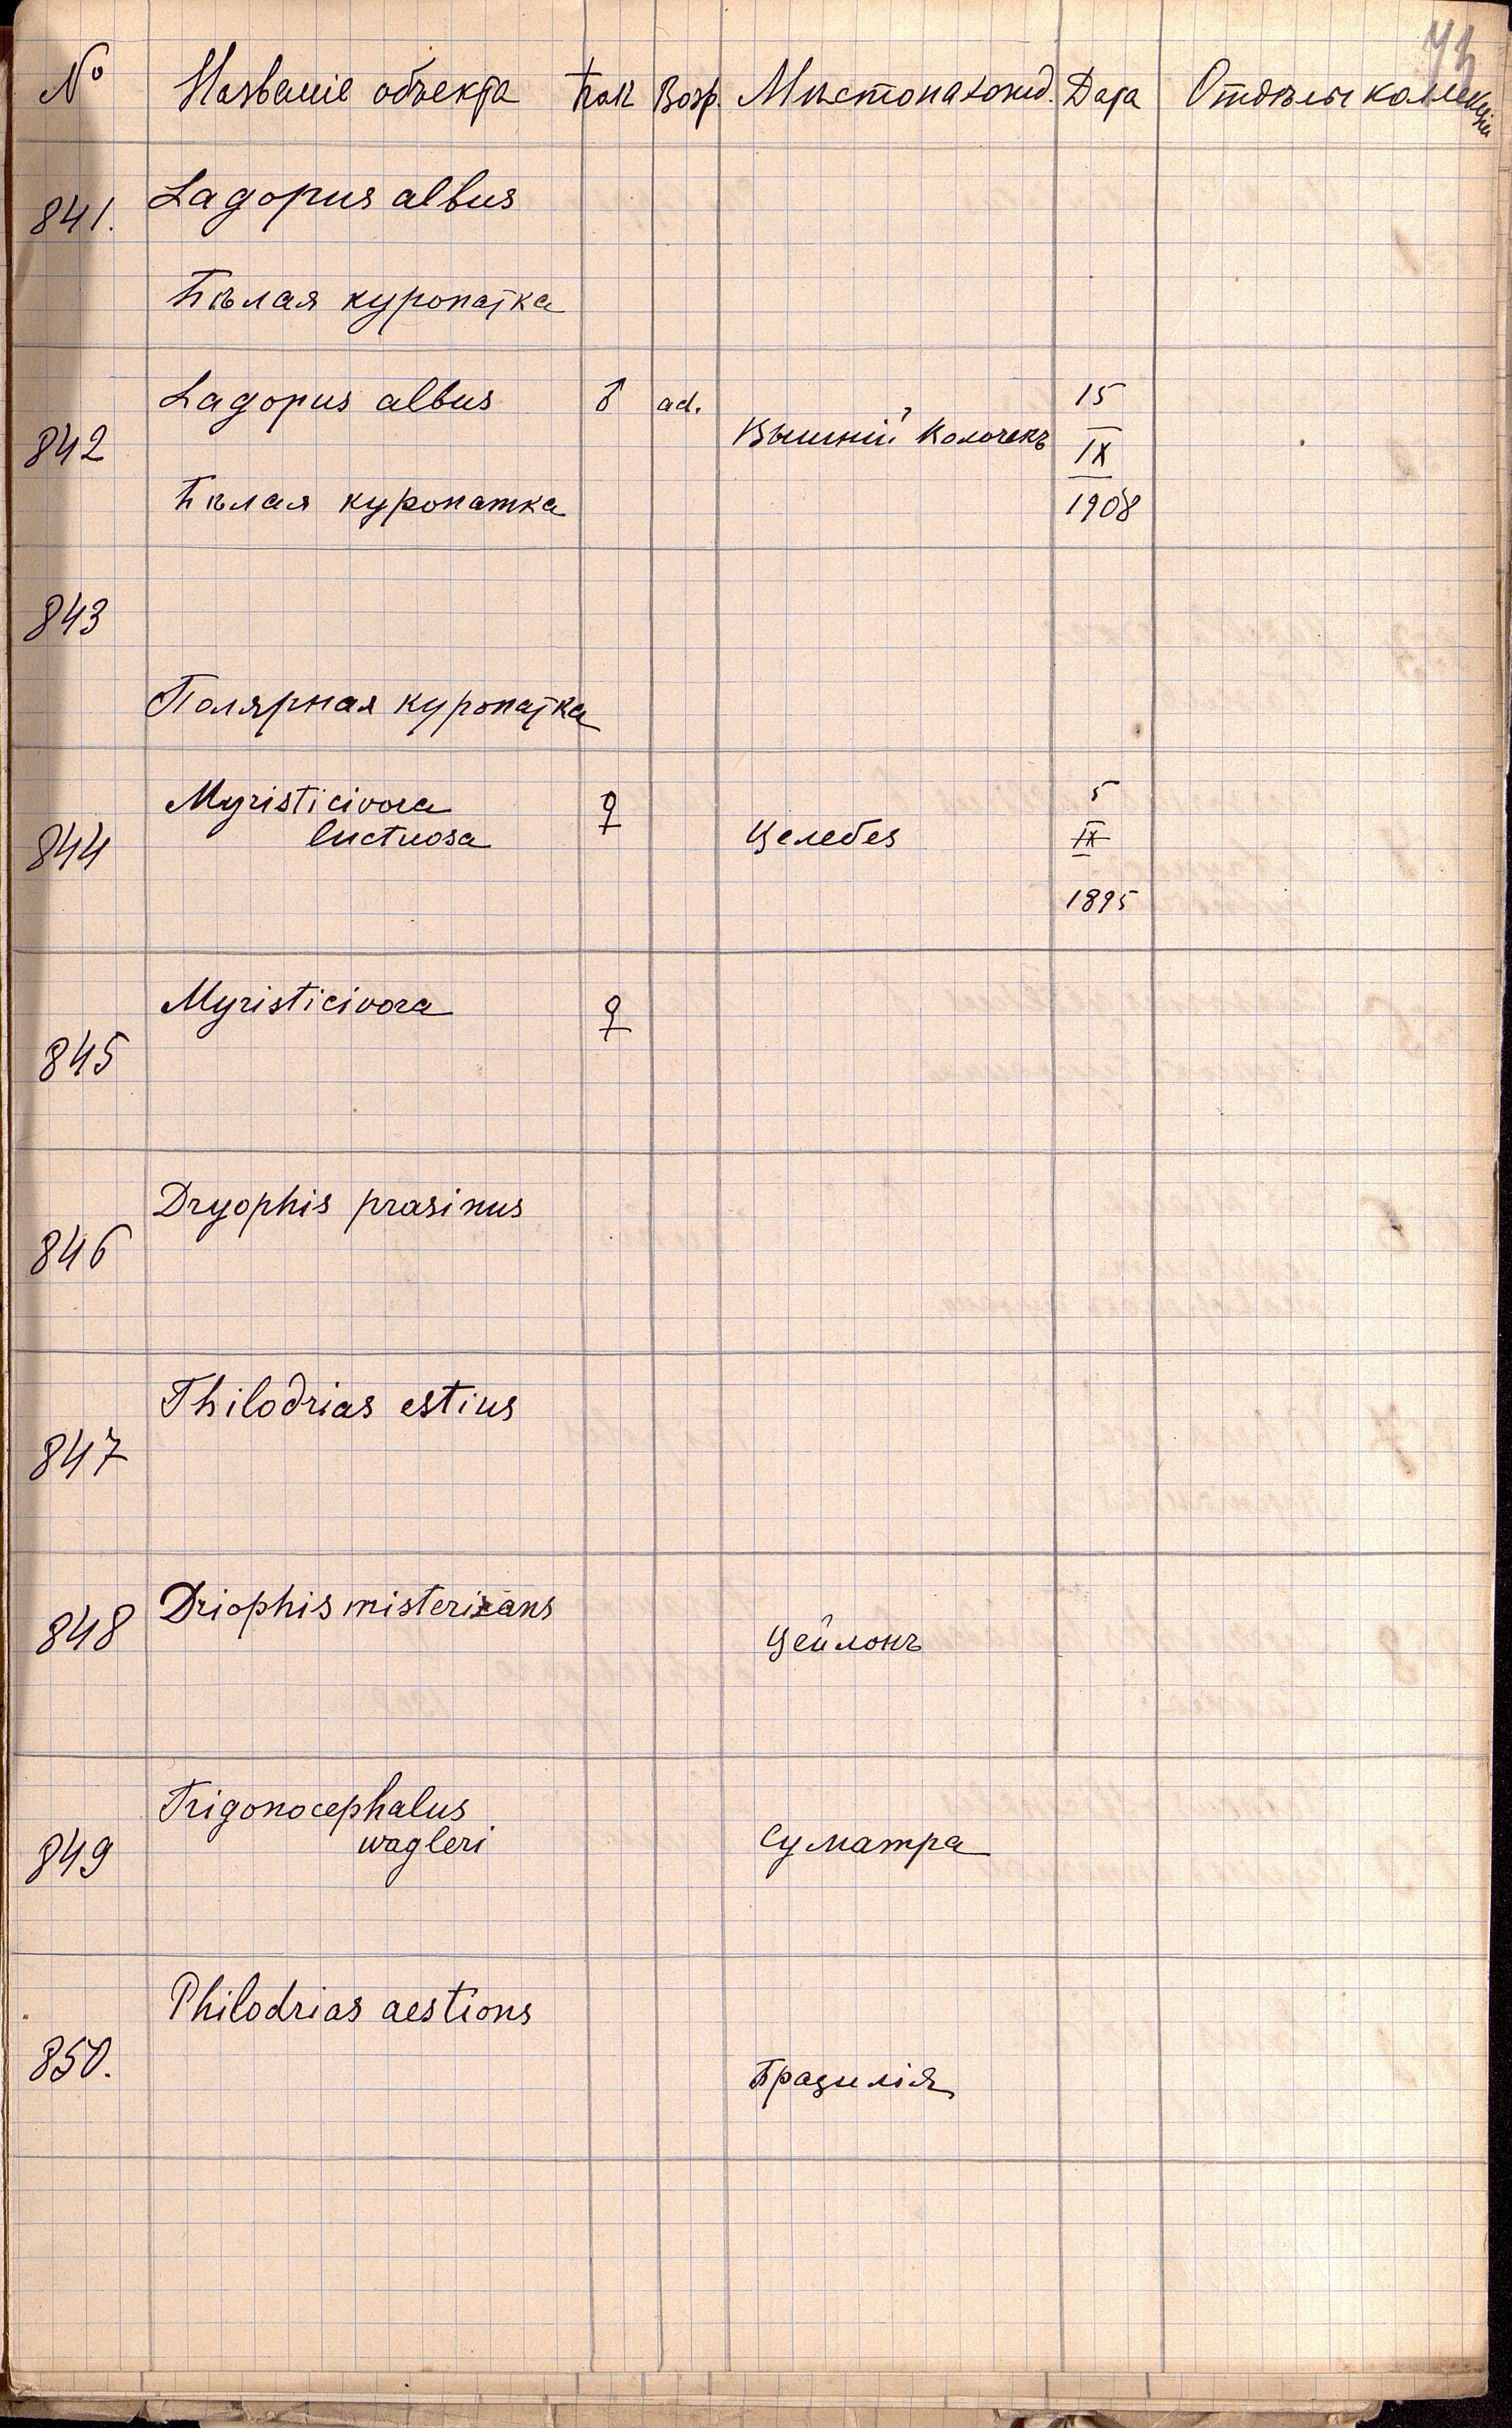 № Названіе объекта Пол Возр. Мѣстонахожд. Дата Отдѣлы коллекціи
841. Lagopus albus
Бѣлая куропатка
842 Lagopus albus ♂ ad. Вышній Волочекъ 15 IX 1908
Бѣлая куропатка
843
Полярная куропатка
844 Myristicivora ♀ Целебес 5 IX 1895
luctuosa
845 Myristicivora ♀
846 Dryophis prasinus
847 Philodrias estius
848 Driophis misterizans Цейлонъ
849 Trigonocephalus
wagleri Суматра
850. Philodrias aestions
Бразилія